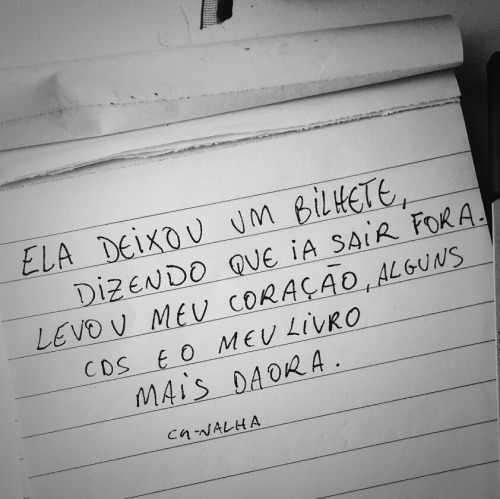 ELA DEIXOU UM BILHETE,
DIZENDO QUE IA SAIR FORA.
LEVOU MEU CORAÇÃO, ALGUNS
CDS E O MEU LIVRO
MAIS DAORA.
CA-NALHA